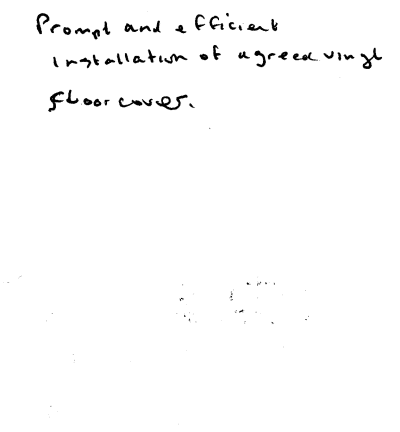 Prompt and efficient
installation of agreed vinyl
floor cover.